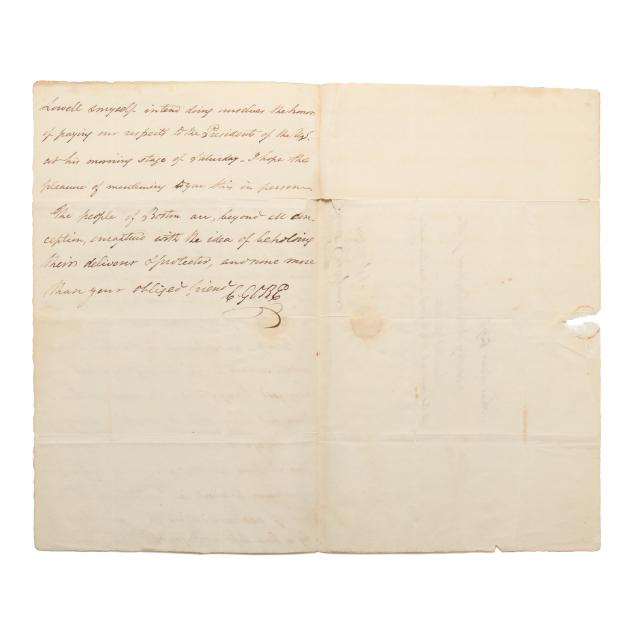 Lowell & myself intend doing ourselves the honor
of paying our respects to the President of the U.S.
at his morning stage of Saturday - I hope the
pleasure of mentioning to you this in person -
The people of Boston are, beyond all con-
ception, enraptured with the idea of beholding
their deliverer & protector, and none more
than your obliged friend
C. GORE